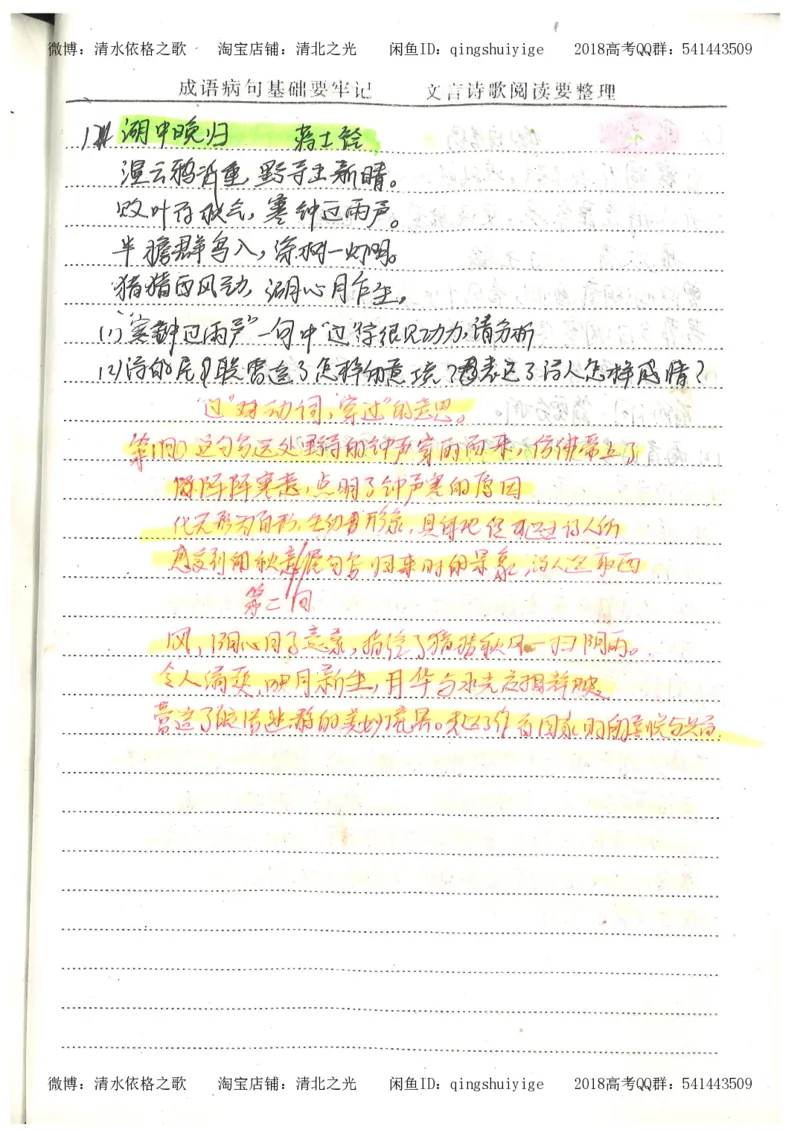 微博：清水依格之歌 淘宝店铺：清北之光 闲鱼ID：qingshuiyige 2018高考QQ群：541443509
成语病句基础要牢记 文言诗歌阅读要整理
湖中晚归 蒋士铨
湿云鸦 重，野寺出新晴。
败叶存秋气，寒钟过雨声。
半檐群鸟入，深树一灯明。
猎猎西风动，湖心月乍生。
(1)"寒钟过雨声"一句中"过"字很见功力，请分析
(2)诗的尾联营造了怎样的意境？表达了诗人怎样感情？
"过"对动词，穿过"的意思。
第1问 这句写远处野寺的钟声穿雨而来，仿佛带上了
阵阵寒意，点明了钟声寒的原因
化无形为有形，生动形象，具体地 诗人所
感受到的秋意 尾句写归来时的景象，诗人选取西
第二问
风，湖心月了意象，描绘了猎猎秋风一扫阴雨。
令人清爽，明月新生，月华与水光应相辉映
营造了 的美妙境界。表达了作者回家时的 与
微博：清水依格之歌 淘宝店铺：清北之光 闲鱼ID：qingshuiyige 2018高考QQ群：541443509